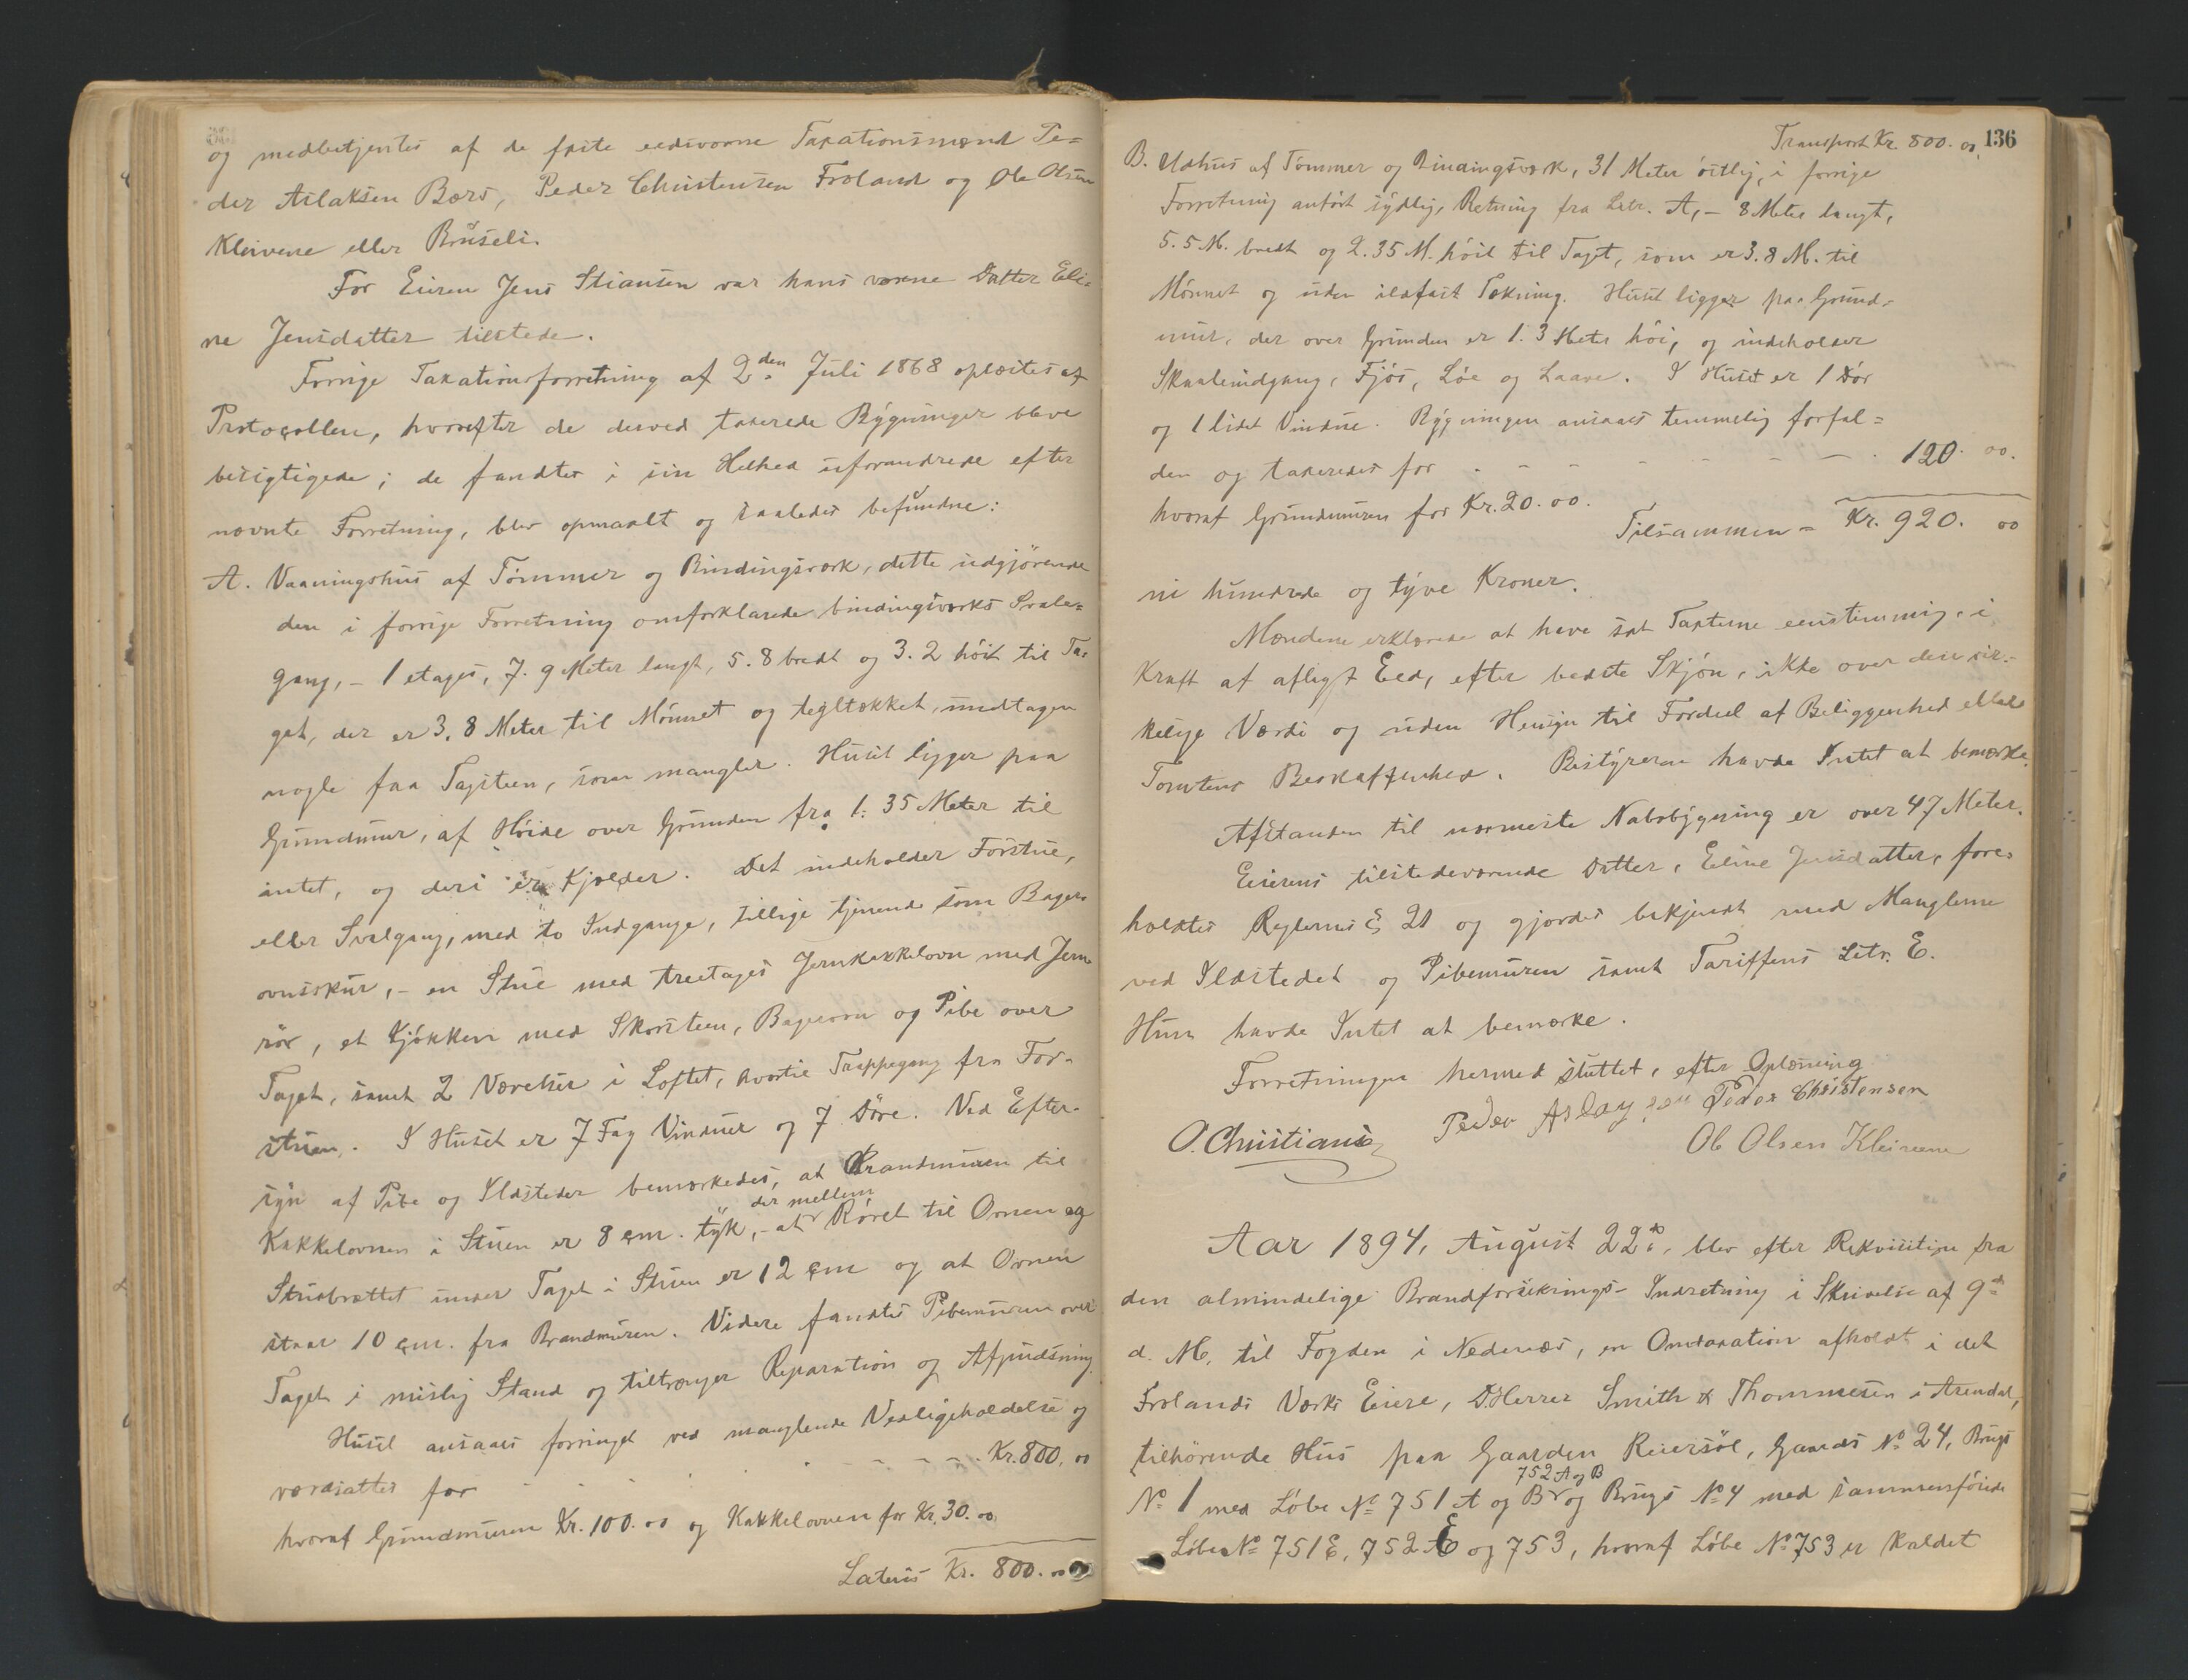 og medbetjentes af de faste eedsvorne Taxationsmænd Pe=
der Aslaksen Børs, Peder Christensen Froland og Ole Olsen
Kleivene eller Brüseli.
For Eieren Jens Stiansen var hans voxne Datter Eli-
ne Jensdatter tilstede.
Forrige Taxationsforretning af 2den Juli 1868 oplæstes af
Protocollen, hvorefter de derved taxerede Bygninger bleve
besigtigede; de fandtes i sin Helhed uforandrede efter
nævnte Forretning, blev opmaalt og saaledes befundne:
A. Vaaningshus af Tømmer og Bindingsværk, dette udgjørende
den i forrige Forretning omforklarede bindingsværks Svale=
gang, - 1 etages, 7.9 Meter langt, 5.8 bredt og 3.2 høit til Ta-
get, der er 3.8 Meter til Mønnet og tegltækket, undtagen
nogle faa Tagsteen, som mangler. Huset ligger paa
Grundmur, af Høide over Grunden fra 1.35 Meter til
intet, og deri er Kjælder. Det indeholder Forstue,
eller Svalgang, med to Indgange, tillige tjenende som Bager-
ovnsskur, - en Stue med treetages Jernkakkelovn med Jern-
rør, et Kjøkken med Skorsteen, Bagerovn og Pibe over
Taget, samt 2 Værelser i Loftet, hvortil Trappegang fra For-
stuen. I Huset er 7 Fag Vinduer og 7 Døre. Ved Efter-
syn af Pibe og Ildsteder bemærkedes, at Brandmuren til
der mellem
Kakkelovnen i Stuen er 8 cm. tyk, - at Røret til Ovnen og
Stusbrættet under Taget i Stuen er 12 cm og at Ovnen
staar 10 cm. fra Brandmuren. Videre fandtes Pibemuren over
Taget i mislig Stand og tiltrænger Reparation og Afpudsning.
Huset ansaaes forringet ved manglende Vedligeholdelse og
værdsattes for - - - - - Kr. 800. 00
hvoraf Grundmuren Kr. 100.00 og Kakkelovnen for Kr. 30.00
Lateris Kr. 800. 00
136
Transport Kr. 800. 00.
B. Udhus af Tømmer og Bindingsværk, 31 Meter østlig, i forrige
Forretning anført sydlig, Retning fra Litr. A, - 8 Meter langt,
5.5 M. bredt og 2.35 M. høit til Taget, som er 3.8 M. til
Mønnet og uden ildfast Tækning. Huset ligger paa Grund-
mur, der over Grunden er 1.3 Meter høi, og indeholder
Skaaleindgang, Fjøs, Løe og Laave. I Huset er 1 Dør
og 1 lidet Vindue. Bygningen ansaaes temmelig forfal=
den og taxeredes for - - - - - 120. 00.
hvoraf Grundmuren for Kr. 20. 00.
Tilsammen = Kr. 920. 00
ni hundrede og tyve Kroner.
Mændene erklærede at have sat Taxterne eenstemmig, i
Kraft af aflagt Eed, efter bedste Skjøn, ikke over den vir-
kelige Værdi og uden Hensyn til Fordeel af Beliggenhed eller
Tomtens Beskaffenhed. Bestyreren havde Intet at bemærke.
Afstanden til nærmeste Nabobygning er over 47 Meter.
Eierens tilstedeværende Datter, Eline Jensdatter, fore-
holdtes Reglernes § 21 og gjordes bekjendt med Manglerne
ved Ildstedet og Pibemuren samt Tariffens Litr. E.
Hun havde Intet at bemærke.
Forretningen hermed sluttet, efter Oplæsning
O. Christians Peder Aslagsen Peder Christensen
Ole Olsen Kleivene
Aar 1894, August 22de, blev efter Rekvisition fra
den almindelige Brandforsikrings-Indretning i Skrivelse af 9de
d. M. til Fogden i Nedenæs, en Omtaxation afholdt i det
Frolands Værks Eiere, DHerrer Smith & Thommesen i Arendal,
tilhørende Hus paa Gaarden Reiersøl, Gaards No 24, Brugs
752 A og B
No 1 med Løbe No 751 A og B og Brugs No 4 med sammenføiede
Løbe No 751 E, 752 E og 753, hvoraf Løbe No 753 er kaldet